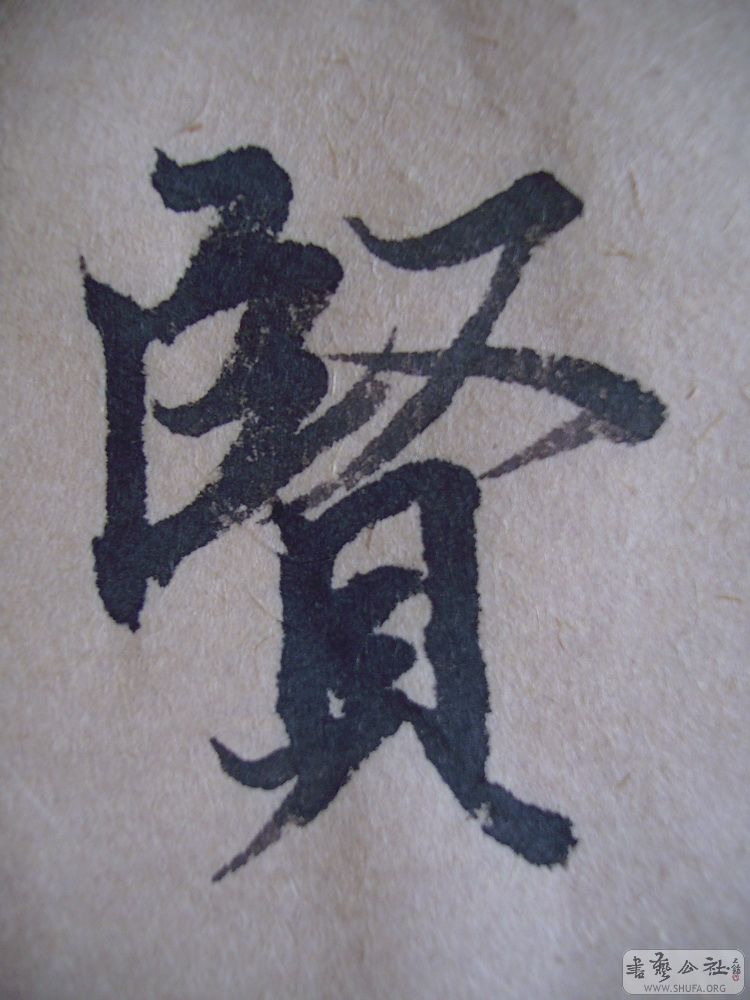 賢
書藝公社
WWW.SHUFA.ORG